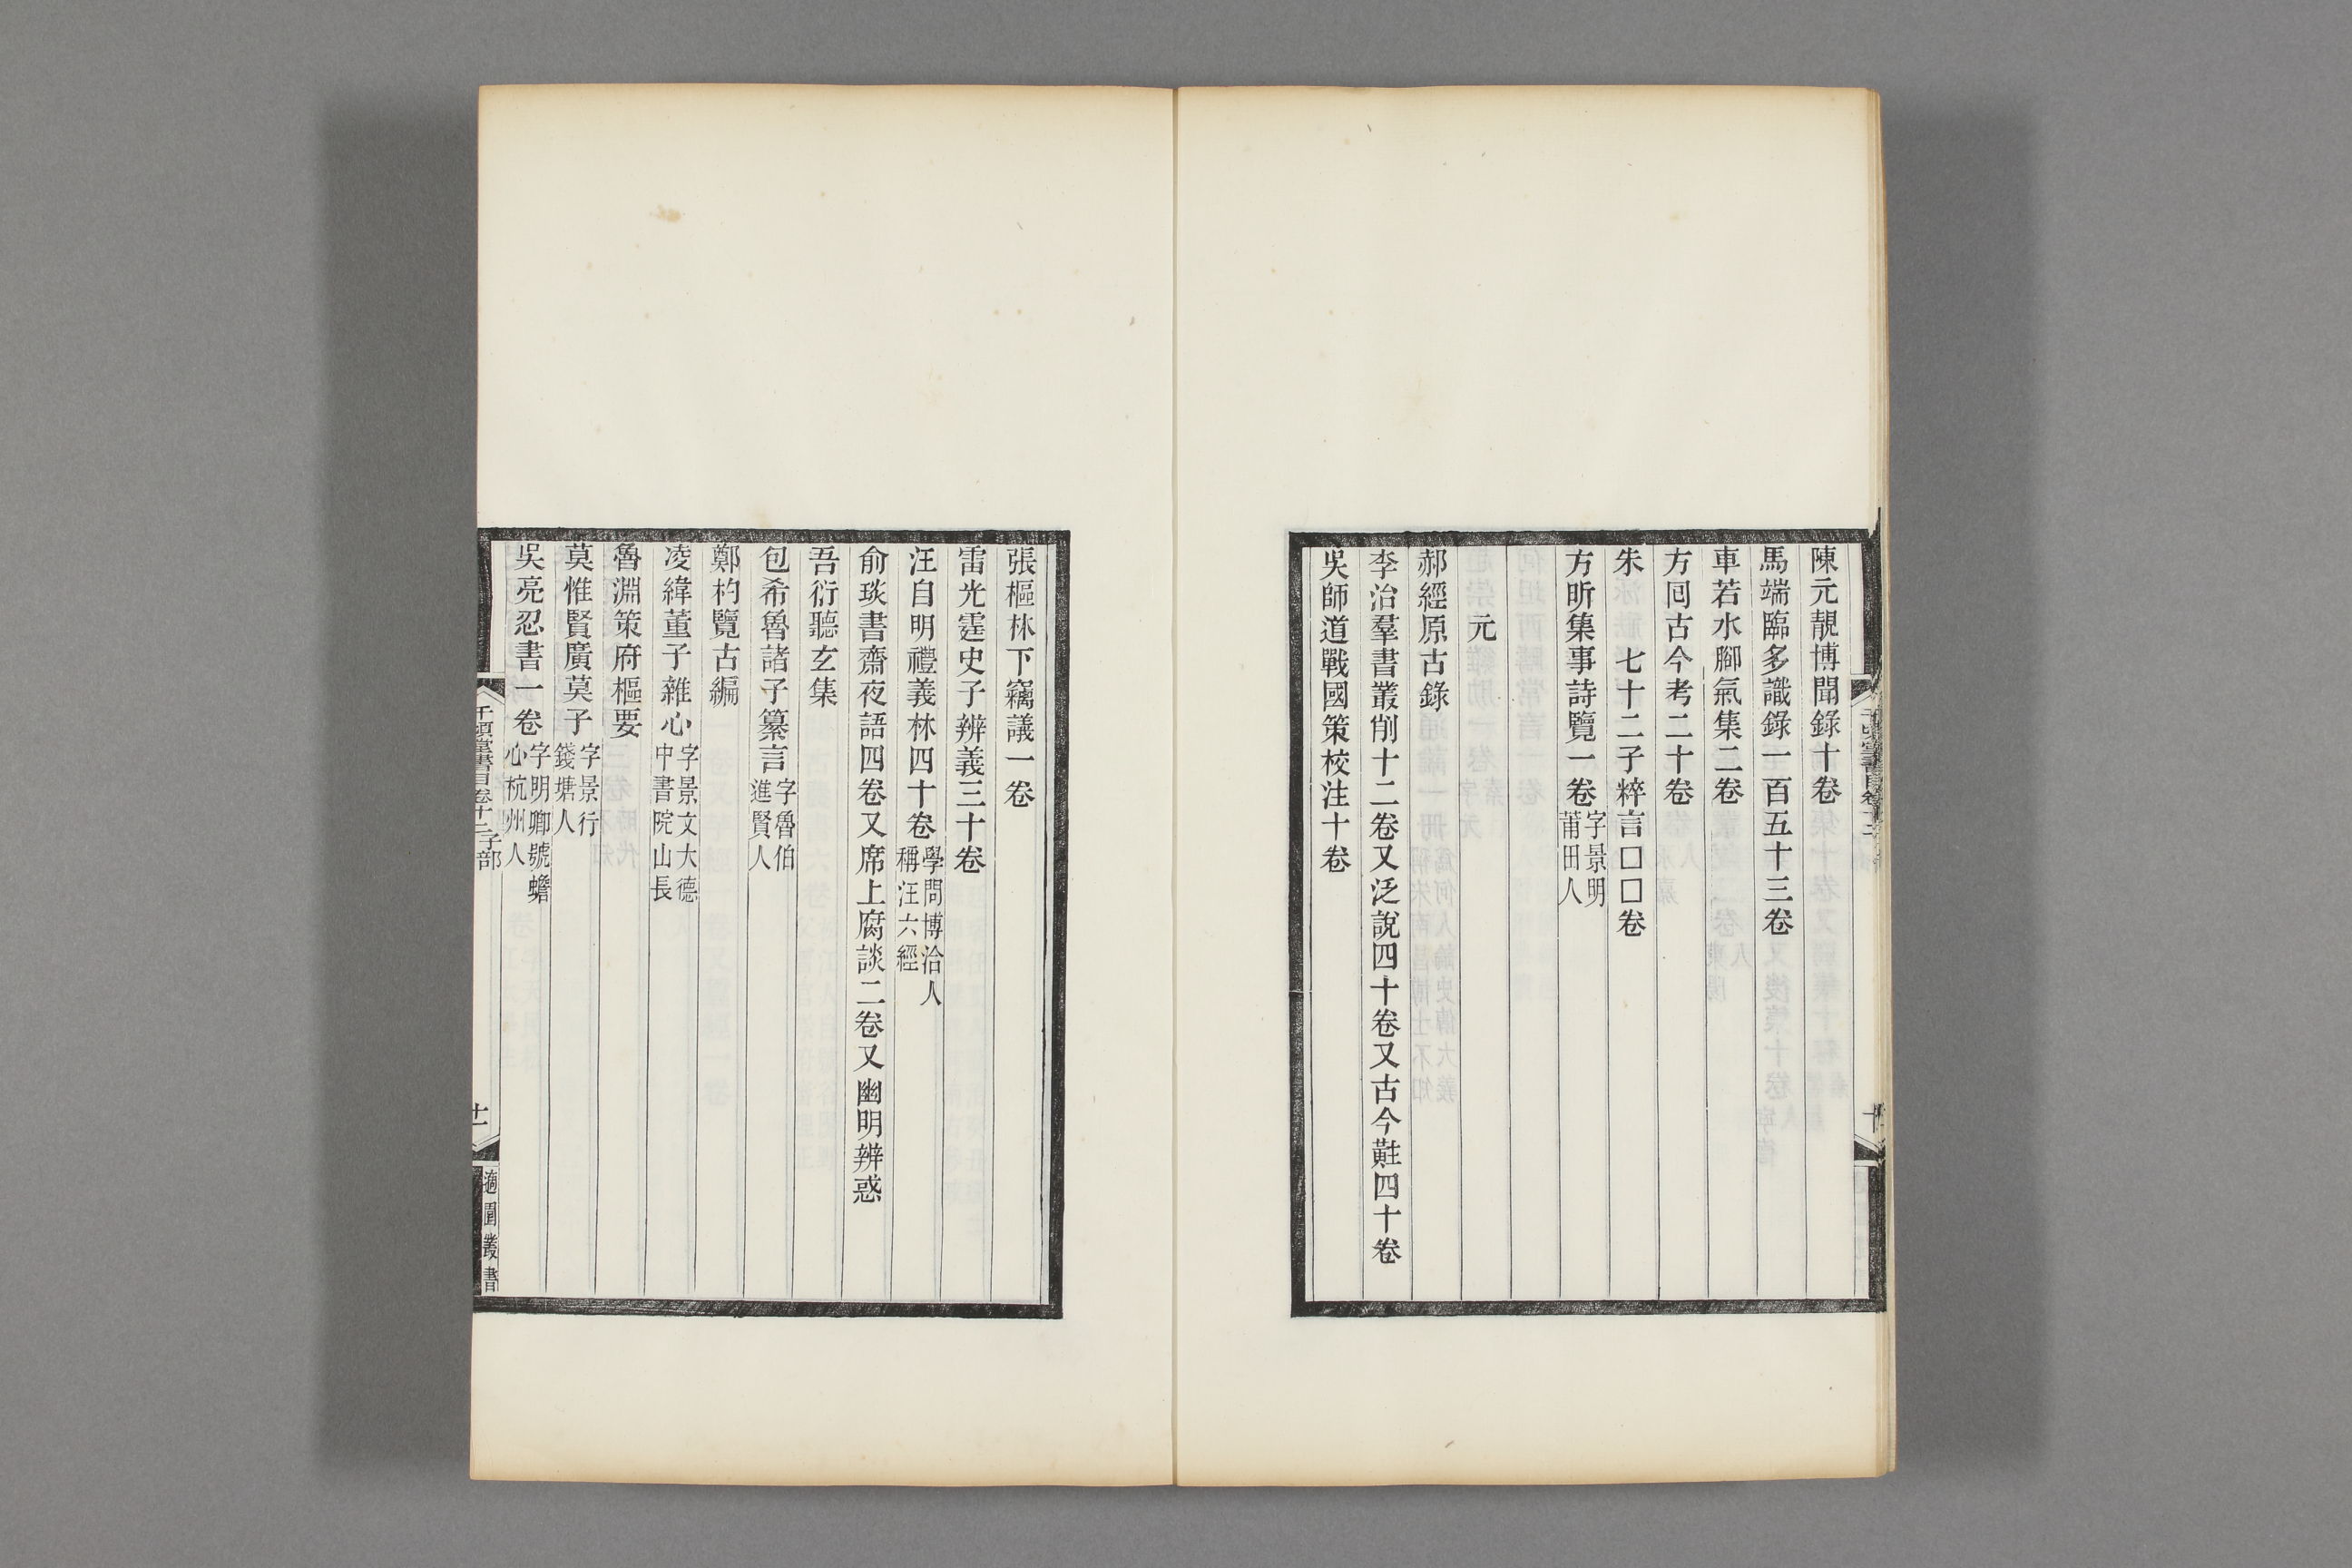 陳元靚博聞錄十卷
馬端臨多識錄一百五十三卷
車若水腳氣集二卷
方回古今考二十卷
朱　七十二子粹言□□卷
方昕集事詩覽一卷字景明莆田人
元
郝經原古錄
李治羣書叢削十二卷又泛說四十卷又古今黈四十卷
吳師道戰國策校注十卷
張樞林下竊議一卷
雷光霆史子辨義三十卷
汪自明禮義林四十卷學問博洽人稱汪六經
俞琰書齋夜語四卷又席上腐談二卷又幽明辨惑
吾衍聽玄集
包希魯諸子纂言字魯伯進賢人
鄭杓覽古編
凌緯董子雜心字景文大德中書院山長
魯淵策府樞要
莫惟賢廣莫子字景行錢塘人
吳亮忍書一卷字明卿號蟾心杭州人
千頃堂書目卷十二子部
十一
適園叢書